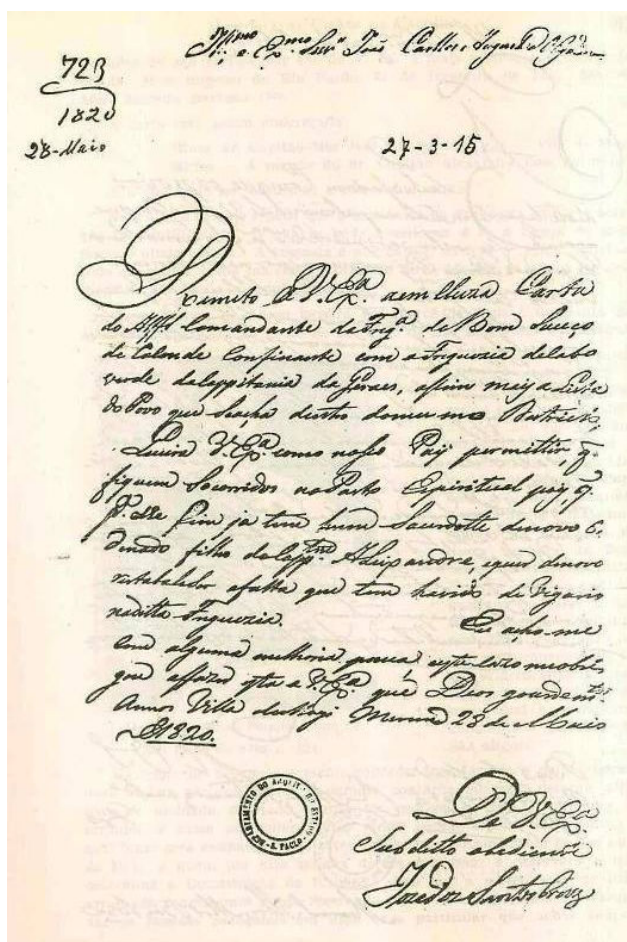 Illmo. e Exmo. Snr. João Carllos Augusto d'
723
1820
28-Maio
27-3-15
Remeto a V. Exa. a Carta
do Comandante da Frega. de Bom Suceço
de confinante com a Freguezia de Cabo
verde da Cappitania da Geraes, assim may a Lista
do Povo que Seacha dentro domesmo
Queira V. Exa. como nosso Pay permittir, q.
fiquem Socorridos no Pasto Espiritual poiz, q.
pa. este fim ja tem hum Sacerdotte denovo Or-
denado filho do Cappam. Aleixandre, e quer denovo
a falta que tem havido de Vigario
naditta Freguezia. Eu acho-me
com alguma melhoria, porem este cazo meobri-
gou a V. Exa. que Deos guarde ms.
Annos Villa de Mogi Merim 28 de Maio
de 1820.
DEPARTAMENTO DO ARQUIVO DO ESTADO - S. PAULO -
De V. Exa.
Subditto obediente
Joze dos Santos Cruz